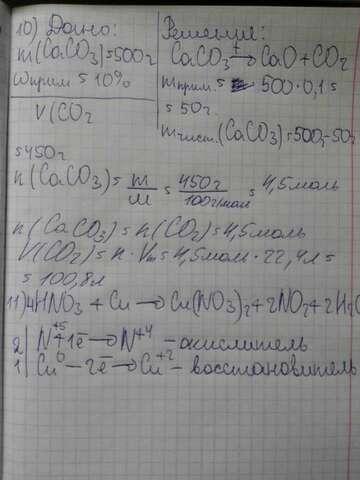 10) Дано:
m(CaCO₃)=500г
wприм = 10%
V(CO₂
Решение:
CaCO₃ →ᵗ CaO + CO₂
mприм. = 500·0,1 =
= 50г.
mчист.(CaCO₃)=500-50=
=450г
n(CaCO₃)= m/M = 450г/100г/моль = 4,5моль
n(CaCO₃)=n(CO₂)=4,5моль
V(CO₂)= n·Vm=4,5моль·22,4л=
= 100,8л
11) 4HNO₃ + Cu → Cu(NO₃)₂+2NO₂+2H₂O
2| N⁺⁵+1ē → N⁺⁴ - окислитель
1| Cu⁰ - 2ē → Cu⁺² - восстановитель